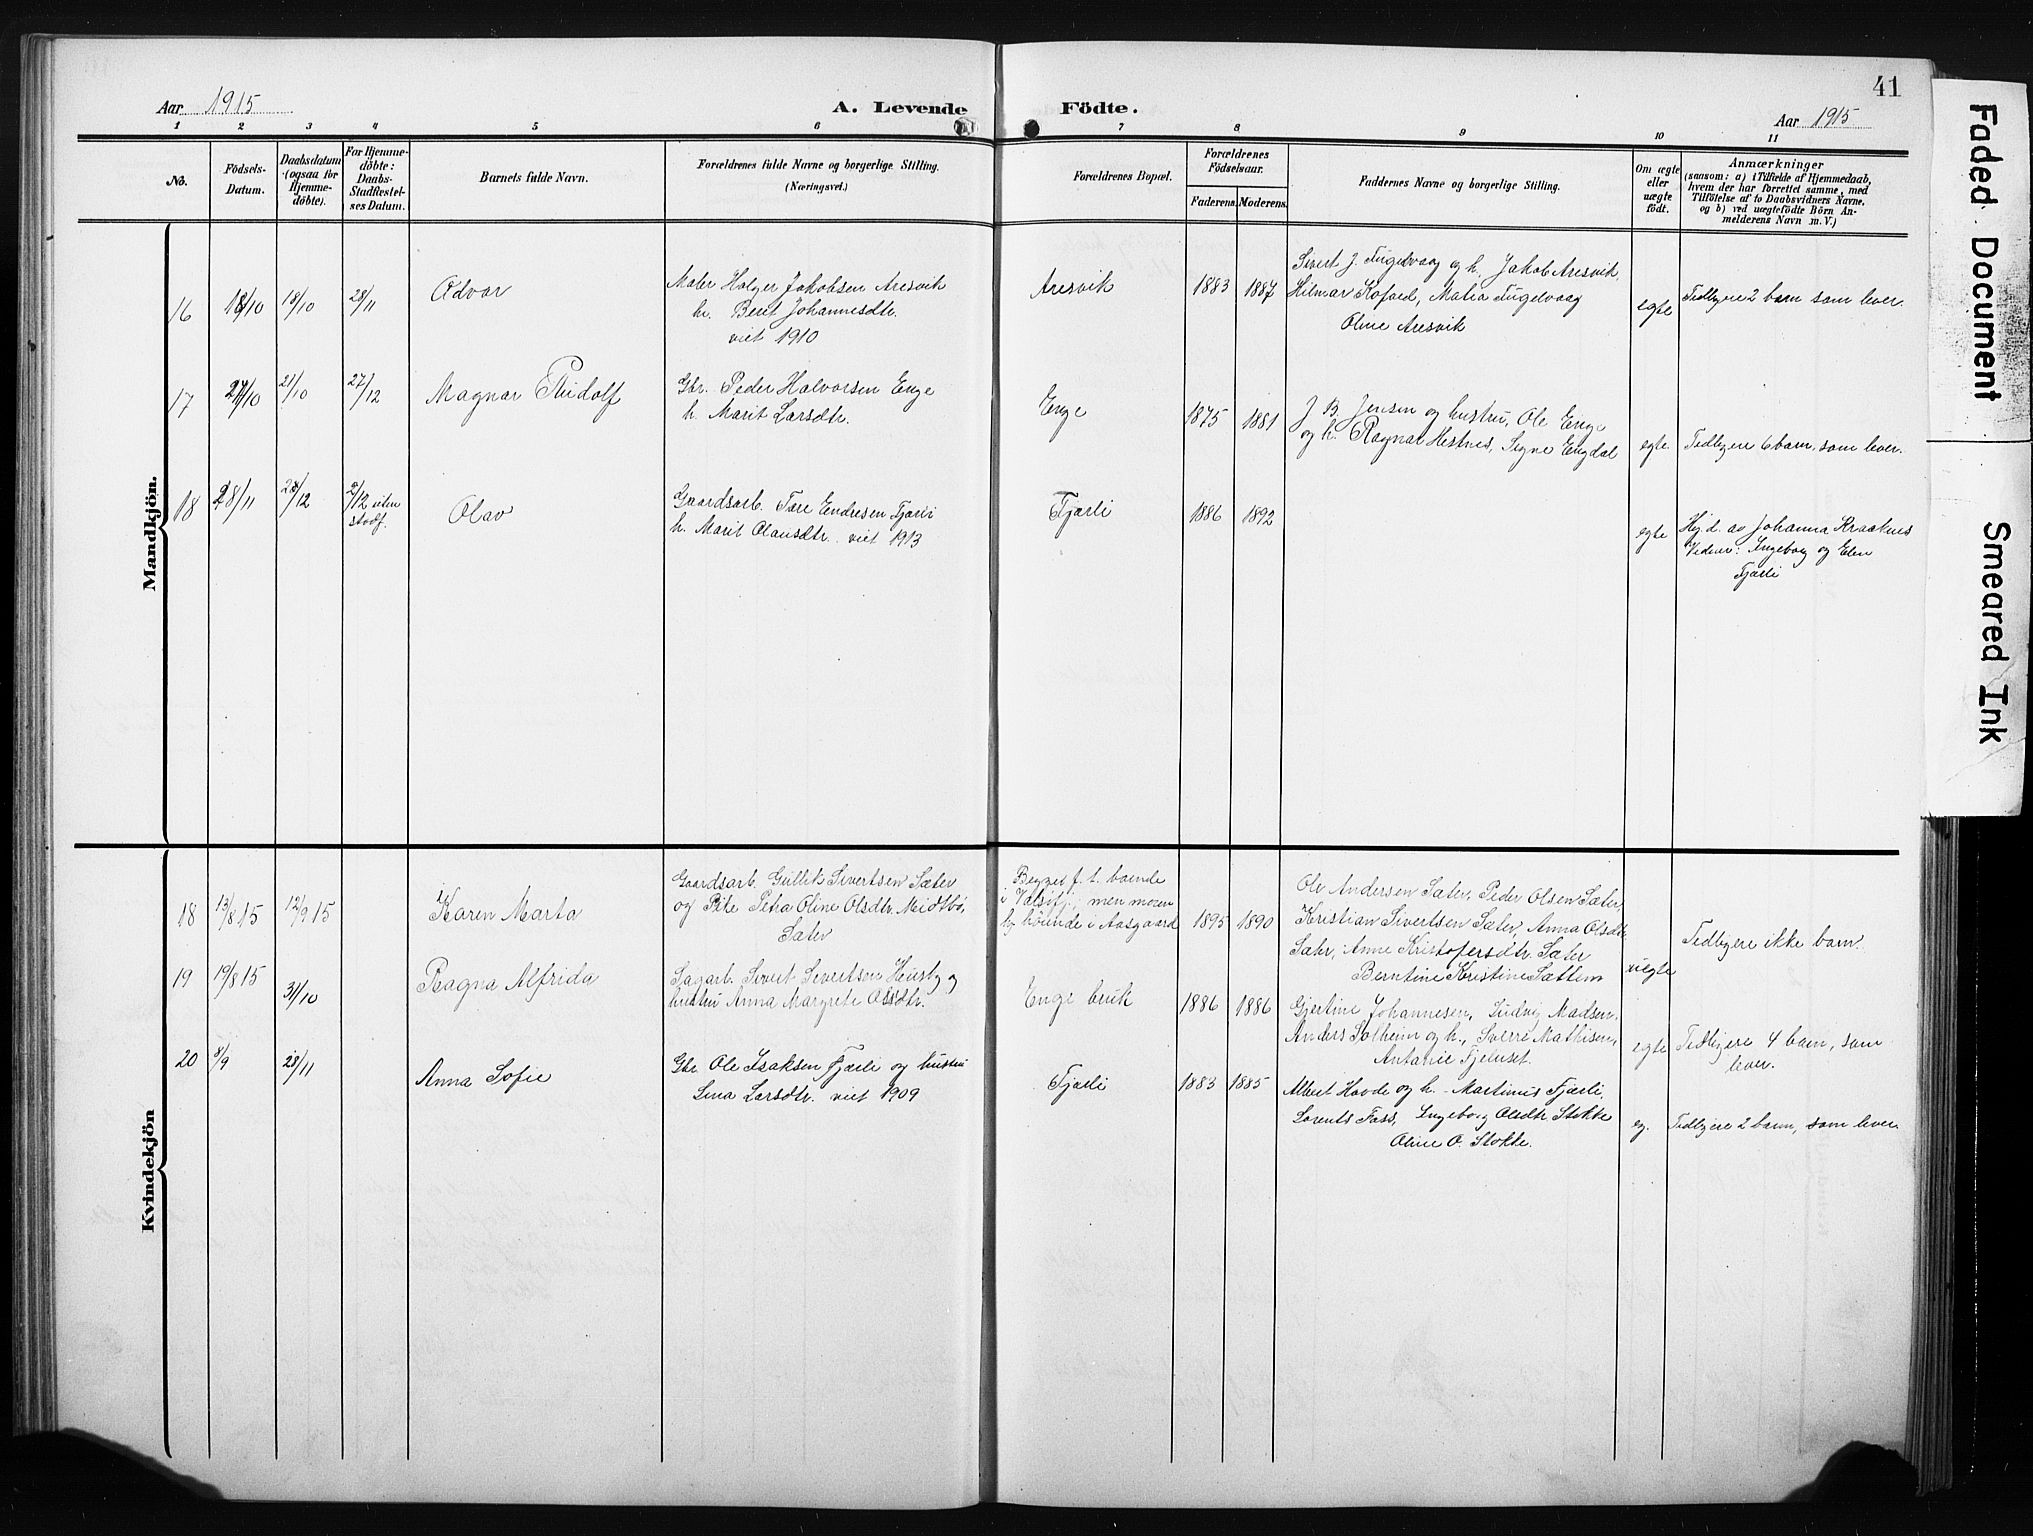 41
Aar 1915
A. Levende
Födte.
Aar 1915
1 2 3 4 5 6 7 8 9 10 11
No.
Födsels-
Datum.
Daabsdatum
(ogsaa for
Hjemme-
döbte).
For Hjemme-
döbte:
Daabs-
Stadfæstel-
ses Datum.
Barnets fulde Navn.
Forældrenes fulde Navne og borgerlige Stilling.
(Næringsvei.)
Forældrenes Bopæl.
Forældrenes
Födselsaar.
Faderens. Moderens.
Faddernes Navne og borgerlige Stilling.
Om ægte
eller
uægte
födt.
Anmærkninger
(saasom: a) i Tilfælde af Hjemmedaab,
hvem der har forrettet samme, med
Tilföielse af to Daabsvidners Navne,
og b) ved uægtefödte Börn An-
melderens Navn m. V.)
Mandkjön.
16 18/10 18/10 28/11
Advar
Maler Holger Jakobsen Aresvik
h. Berit Johannesdtr.
viet 1910
Aresvik
1883 1887
Sivert J. Fugelvaag og h. Jakob Aresvik,
Hilmar Kofoed, Malia Fugelvaag
Oline Aresvik
egte
Tidligere 2 barn som lever.
17 21/10 27/12
Magnar Rudolf
Gbr. Peder Halvorsen Enge
h. Marit Larsdtr.
Enge
1875 1881
J. B. Jensen og hustru, Ole Enge
og h. Ragnar Hestnes, Signe Engdal
egte
Tidligere 6 barn, som lever.
18 28/11 28/12 2/12 uten
stadf.
Olav
Gaardsarb. Tore Endresen Fjærli
h. Marit Olausdtr. viet 1913
Fjærli
1886 1892
egte
Hj.d. av Johanna Kraaknes
Vidner: Ingeborg og Elen
Fjærli
Kvindekjön
18 13/8 15 12/9 15
Karen Marta
Gaardsarb. Gullik Sivertsen Sæter
og Pike Petra Oline Olsdtr. Midtbö,
Sæter
Begge f. t. boende
i Valsöfj.; men moren
hj hörende i Aasgaard
1895 1890
Ole Andersen Sæter, Peder Olsen Sæter,
Kristian Sivertsen Sæter, Anna Olsdtr.
Sæter, Anne Kristofersdtr. Sæter
Berntine Kristine Sættem
uegte
Tidligere ikke barn.
19 19/8 15 31/10
Ragna Alfrida
Sagarb. Sivert Sivertsen Husby og
hustru Anna Margrete Olsdtr.
Enge bruk
1886 1886
Gjertine Johannesen, Ludvig Madsen,
Anders Solheim og h., Sverre Mathisen,
Antonie Fjeluset.
egte
Tidligere 4 barn, som
lever.
20 8/9 28/11
Anna Sofie
Gbr. Ole Isaksen Fjærli og hustru
Lina Larsdtr. viet 1909
Fjærli
1883 1885
Albert Hovde og h. - Martinus Fjærli,
Lorents Foss, Ingeborg Olsdtr Stokke
Oline O. Stokke.
eg.
Tidligere 2 barn, som lever.
Faded Document
Smeared Ink